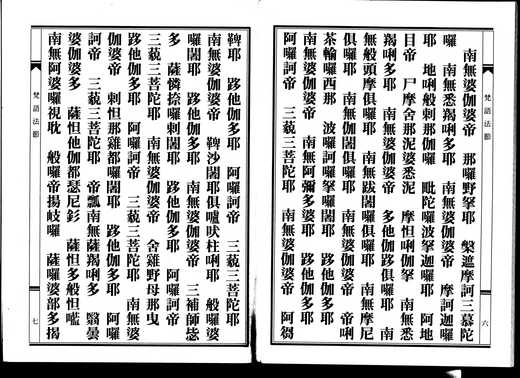 南無婆伽婆帝　那囉野拏耶　槃遮摩訶三慕陀
囉　南無悉羯唎多耶　南無婆伽婆帝　摩訶迦囉
耶　地唎般刺那伽囉　毗陀囉波拏迦囉耶　阿地
目帝　尸摩舍那泥婆悉泥　摩怛唎伽拏　南無悉
羯唎多耶　南無婆伽婆帝　多他伽跢俱囉耶　南
無般頭摩俱囉耶　南無跋闍囉俱囉耶　南無摩尼
俱囉耶　南無伽闍俱囉耶　南無婆伽婆帝　帝唎
茶輸囉西那　波囉訶囉拏囉闍耶　跢他伽多耶
南無婆伽婆帝　南無阿彌多婆耶　跢他伽多耶
阿囉訶帝　三藐三菩陀耶　南無婆伽婆帝　阿芻
梵語法節
六
鞞耶　跢他伽多耶　阿囉訶帝　三藐三菩陀耶
南無婆伽婆帝　鞞沙闍耶俱嚧吠柱唎耶　般囉婆
囉闍耶　跢他伽多耶　南無婆伽婆帝　三補師毖
多　薩憐捺囉刺闍耶　跢他伽多耶　阿囉訶帝
三藐三菩陀耶　南無婆伽婆帝　舍雞野母那曳
跢他伽多耶　阿囉訶帝　三藐三菩陀耶　南無婆
伽婆帝　刺怛那雞都囉闍耶　跢他伽多耶　阿囉
訶帝　三藐三菩陀耶　帝瓢南無薩羯唎多　翳曇
婆伽婆多　薩怛他伽都瑟尼釤　薩怛多般怛嚂
南無阿婆囉視耽　般囉帝揚岐囉　薩囉婆部多揭
梵語法節
七